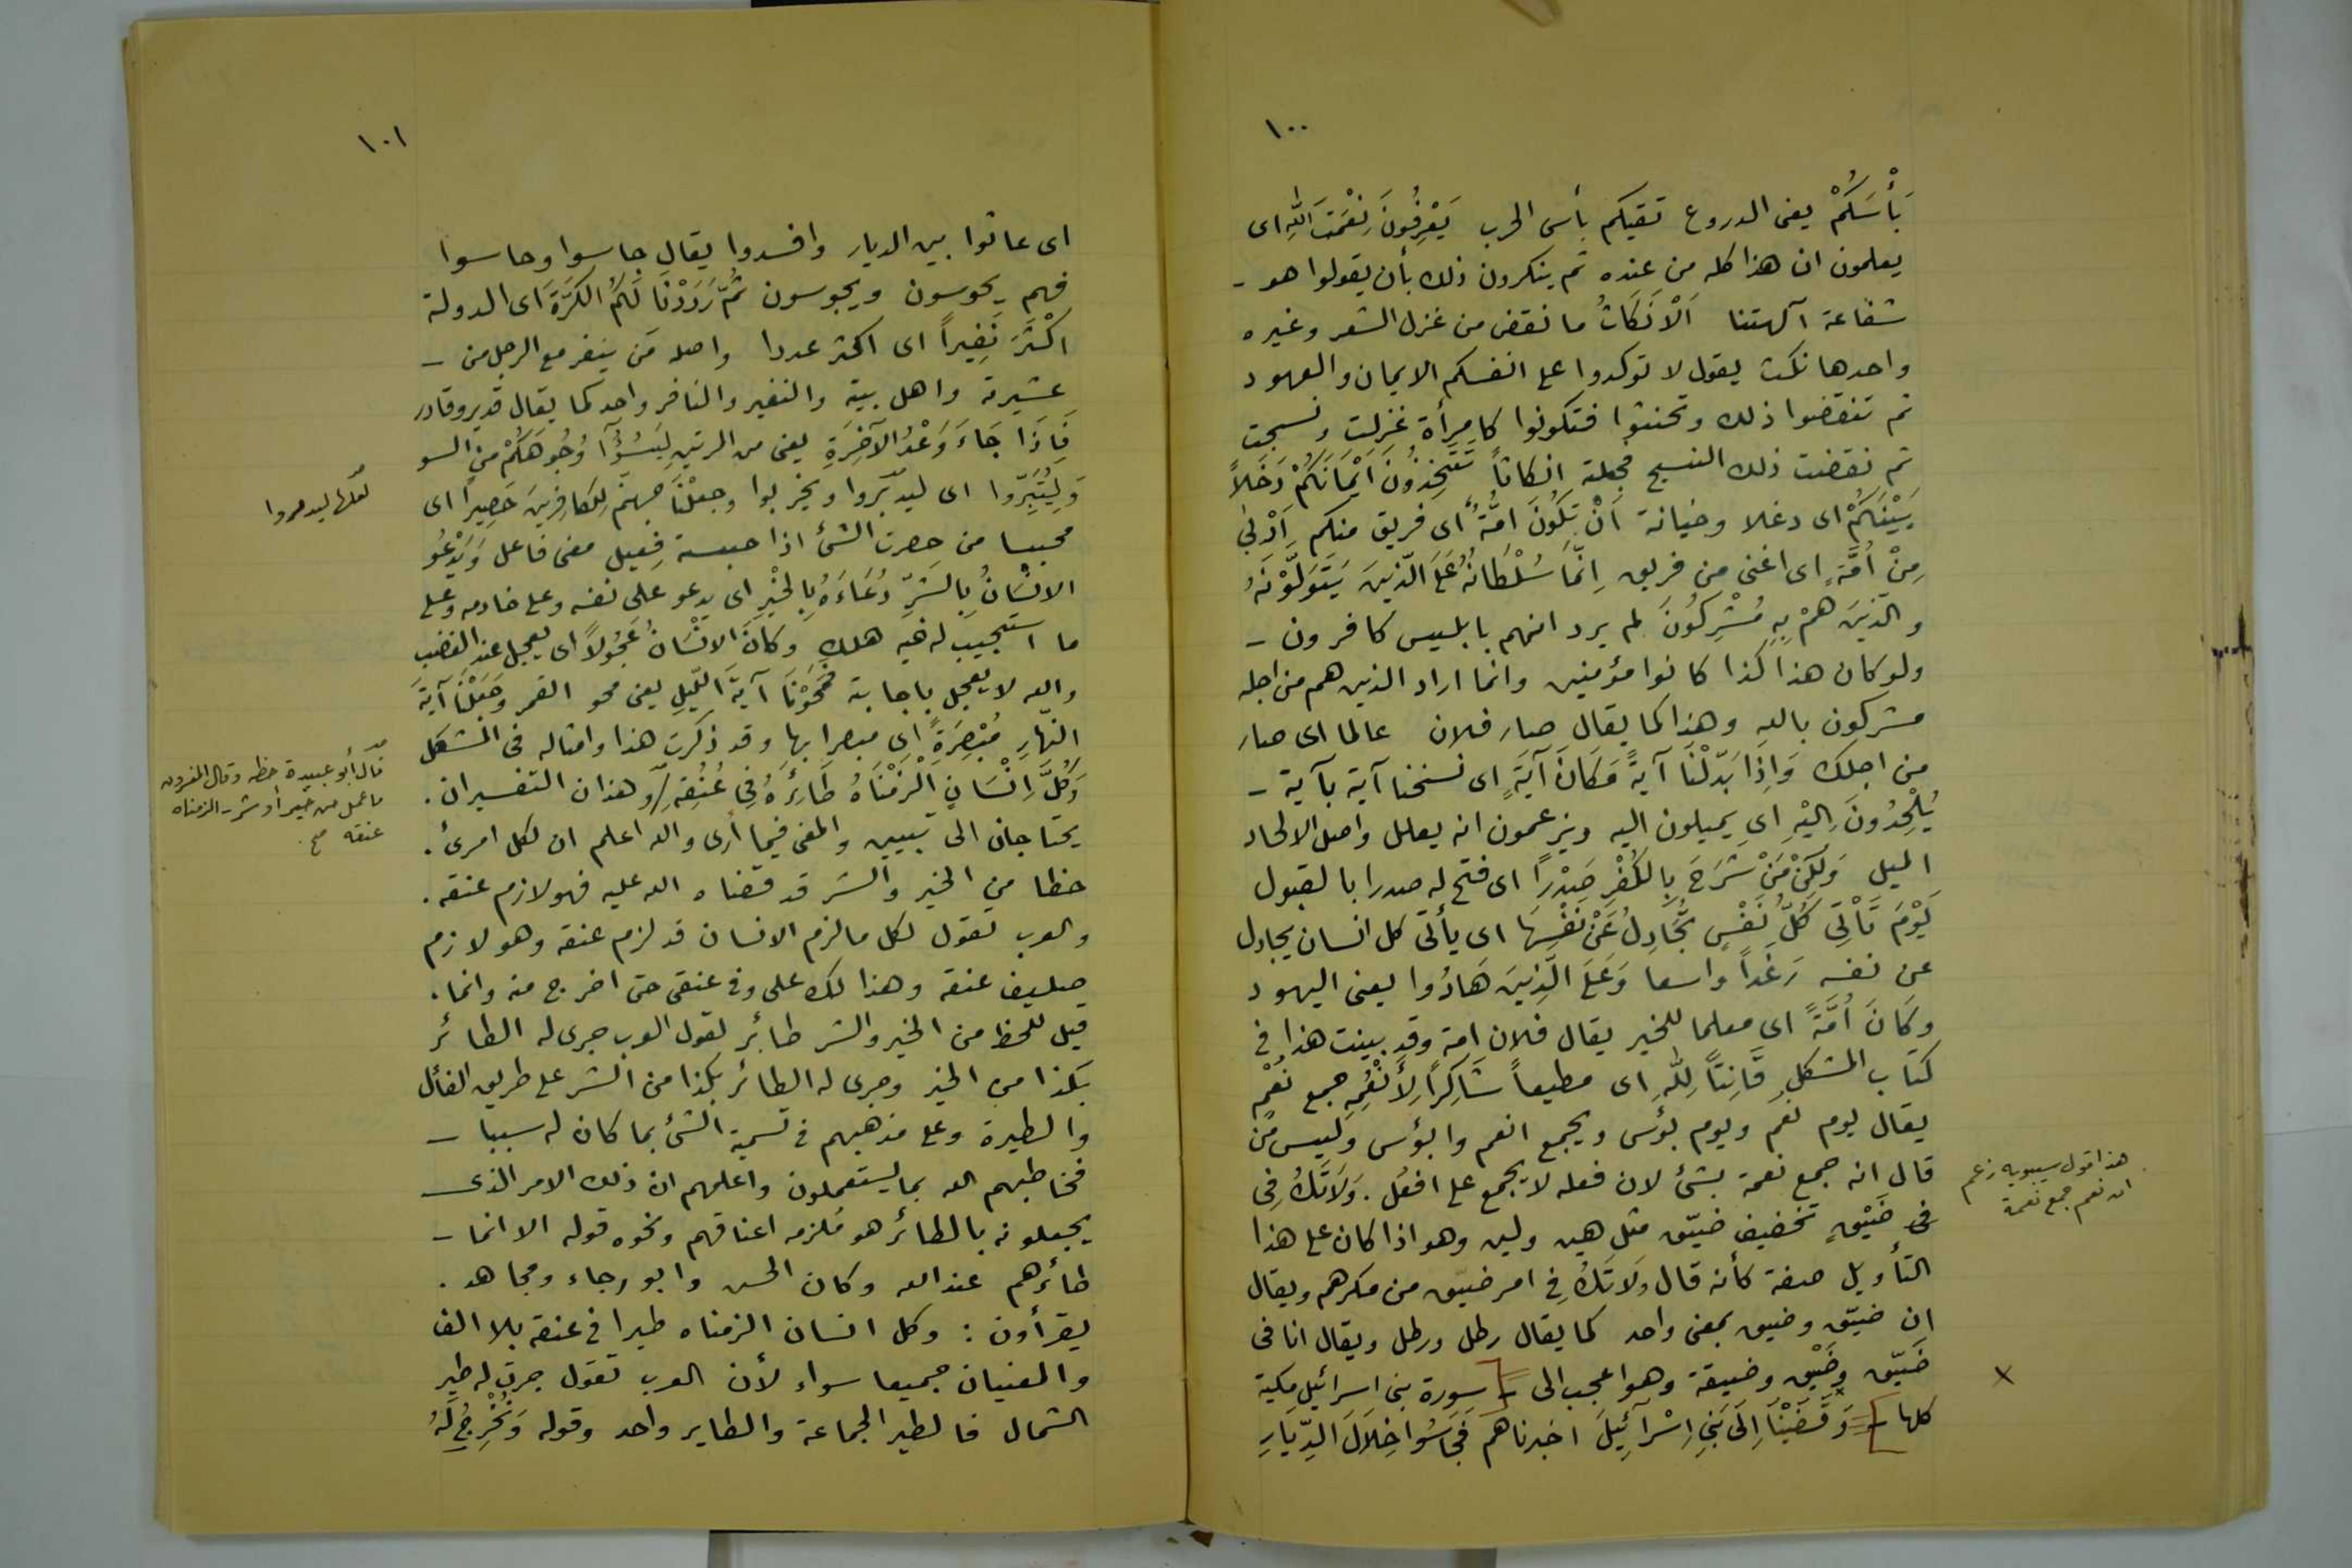 ١٠٠
بَأْسَكُمْ يعنى الدروع تقيكم بأس الحرب يَعْرِفُونَ نِعْمَتَ اللهِ اى
يعلمون ان هذا كله من عنده ثم ينكرون ذلك بأن يقولوا هو -
شفاعة آلهتنا اَلْاَنكَاثُ ما نقض من غزل الشعر وغيره
واحدها نكث يقول لا توكدوا على انفسكم الايمان والعهود
ثم تنقضوا ذلك وتحنثوا فتكونوا كامرأة غزلت ونسجت
ثم نقضت ذلك النسج فجعلته انكاثاً تَتَّخِذُونَ اَيْمَانَكُمْ دَخَلاً
بَيْنَكُمْ اى دغلا وخيانة اَنْ تَكُونَ اُمَّةٌ اى فريق منكم اَرْبَى
مِنْ اُمَّةٍ اى اغنى من فريق اِنَّمَا سُلْطَانُهُ عَلَى الَّذِينَ يَتَوَلَّوْنَهُ
والَّذِينَ هُمْ بِهِ مُشْرِكُونَ لم يرد انهم بابليس كافرون -
ولو كان هذا كذا كانوا مؤمنين وانما اراد الذين هم من اجله
مشركون بالله وهذا كما يقال صار فلان عالما اى صار
من اجلك وَاِذَا بَدَّلْنَا آيَةً مَكَانَ آيَةٍ اى نسخنا آية بآية -
يُلْحِدُونَ اِلَيْهِ اى يميلون اليه ويزعمون انه يعلل واصل الالحاد
الميل وَلَكِنْ مَنْ شَرَحَ بِالكُفْرِ صَدْراً اى فتح له صدرا بالقبول
يَوْمَ تَأْتِى كُلُّ نَفْسٍ تُجَادِلُ عَنْ نَفْسِهَا اى يأتى كل انسان يجادل
عن نفسه رَغَداً واسعا وَعَلَى الَّذِينَ هَادُوا يعنى اليهود
وكَانَ اُمَّةً اى معلما للخير يقال فلان امة وقد بينت هذا فى
كتاب المشكل قَانِتاً لِلهِ اى مطيعاً شَاكِراً لِأَنْعُمِهِ جمع نُعْم
يقال يوم نعم ويوم بؤس ويجمع انعم وابؤس وليس من
قال انه جمع نعمة بشئ لان فعله لا يجمع على افعُل. وَلَاتَكُ فِى
فى ضَيْقٍ تخفيف ضيّق مثل هين ولين وهو اذا كان على هذا
التأويل صفة كأنه قال ولَاتَكُ فى امر ضيق من مكرهم ويقال
ان ضيّق وضيق بمعنى واحد كما يقال رطل ورطل ويقال انا فى
ضَيّق وضَيْق وضيقة وهو اعجب الى - [سورة بنى اسرائيل مكية
كلها] - وَقَضَيْنَا اِلَى بَنِى اِسْرَآئِيلَ اخبرناهم فَجَاسُوا خِلَالَ الدِّيَارِ
هذا قول سيبويه زعم
ان نعم جمع نعمة
x
١٠١
اى عاثوا بين الديار وافسدوا يقال جاسوا وحاسوا
فهم يحوسون ويجوسون ثُمَّ رَدَدْنَا لَكُمُ الكَرَّةَ اى الدولة
اكْثَرَ نَفِيراً اى اكثر عددا واصله مَن ينفر مع الرجل من -
عشيرته واهل بيته والنفير والنافر واحد كما يقال قدير وقادر
فَاِذَا جَاءَ وَعْدُ الآخِرَةِ يعنى من المرتين لِيَسُوؤُآ وُجُوهَكُمْ من السو
وَلِيُتَبِّرُوا اى ليدبّروا ويخربوا وجعلْنَا جهنّمَ لِلكَافِرِينَ حَصِيراً اى
محبسا من حصرت الشئ اذا حبسته فعيل معنى فاعل وَيَدْعُو
الانْسَانُ بِالشَرِّ دُعَاءَهُ بِالخَيْرِ اى يدعو على نفسه وعلى خادمه وعلى
ما استجيب له فيه هلك وكانَ الانْسَانُ عَجُولاً اى يعجل عند الغضب
والله لا يعجل باجابته فمَحَوْنَا آيَةَ اللّيلِ يعنى محو القمر وجَعَلْنَا آيَةَ
النّهارِ مُبْصِرَةً اى مبصرا بها وقد ذكرت هذا وامثاله فى المشكل
وَكُلَّ اِنْسَانٍ اَلْزَمْنَاهُ طَائِرَهُ فِى عُنُقِهِ وهذان التفسيران.
يحتاجان الى تبيين والمعنى فيما أرى والله اعلم ان لكل امرئ.
حظا من الخير والشر قد قضاه الله عليه فهو لازم عنقه.
والعرب تقول لكل ما لزم الانسان قد لزم عنقه وهو لازم
صليف عنقه وهذا لك على وفى عنقى حتى اخرج منه وانما.
قيل للحظ من الخير والشر طائر لقول العرب جرى له الطائر
بكذا من الخير وجرى له الطائر بكذا من الشر على طريق الفأل
والطيرة وعلى مذهبهم فى تسمية الشئ بما كان له سببا -
فخاطبهم الله بما يستعملون واعلمهم ان ذلك الامر الذى -
يجعلونه بالطائر هو مُلزمه اعناقهم ونحوه قوله الا انما -
طائرهم عند الله وكان الحسن وابو رجاء ومجاهد.
يقرأون: وكل انسان الزمناه طيرا فى عنقه بلا الف
والمعنيان جميعا سواء لأن العرب تقول جرت له طير
الشمال فالطير الجماعة والطاير واحد وقوله وَنُخْرِجُ لَهُ
لعلها ليدمروا
قال أبو عبيدة حظه وقال المفسرون
ما عمل من خير أو شر - الزمناه
عنقه صح.